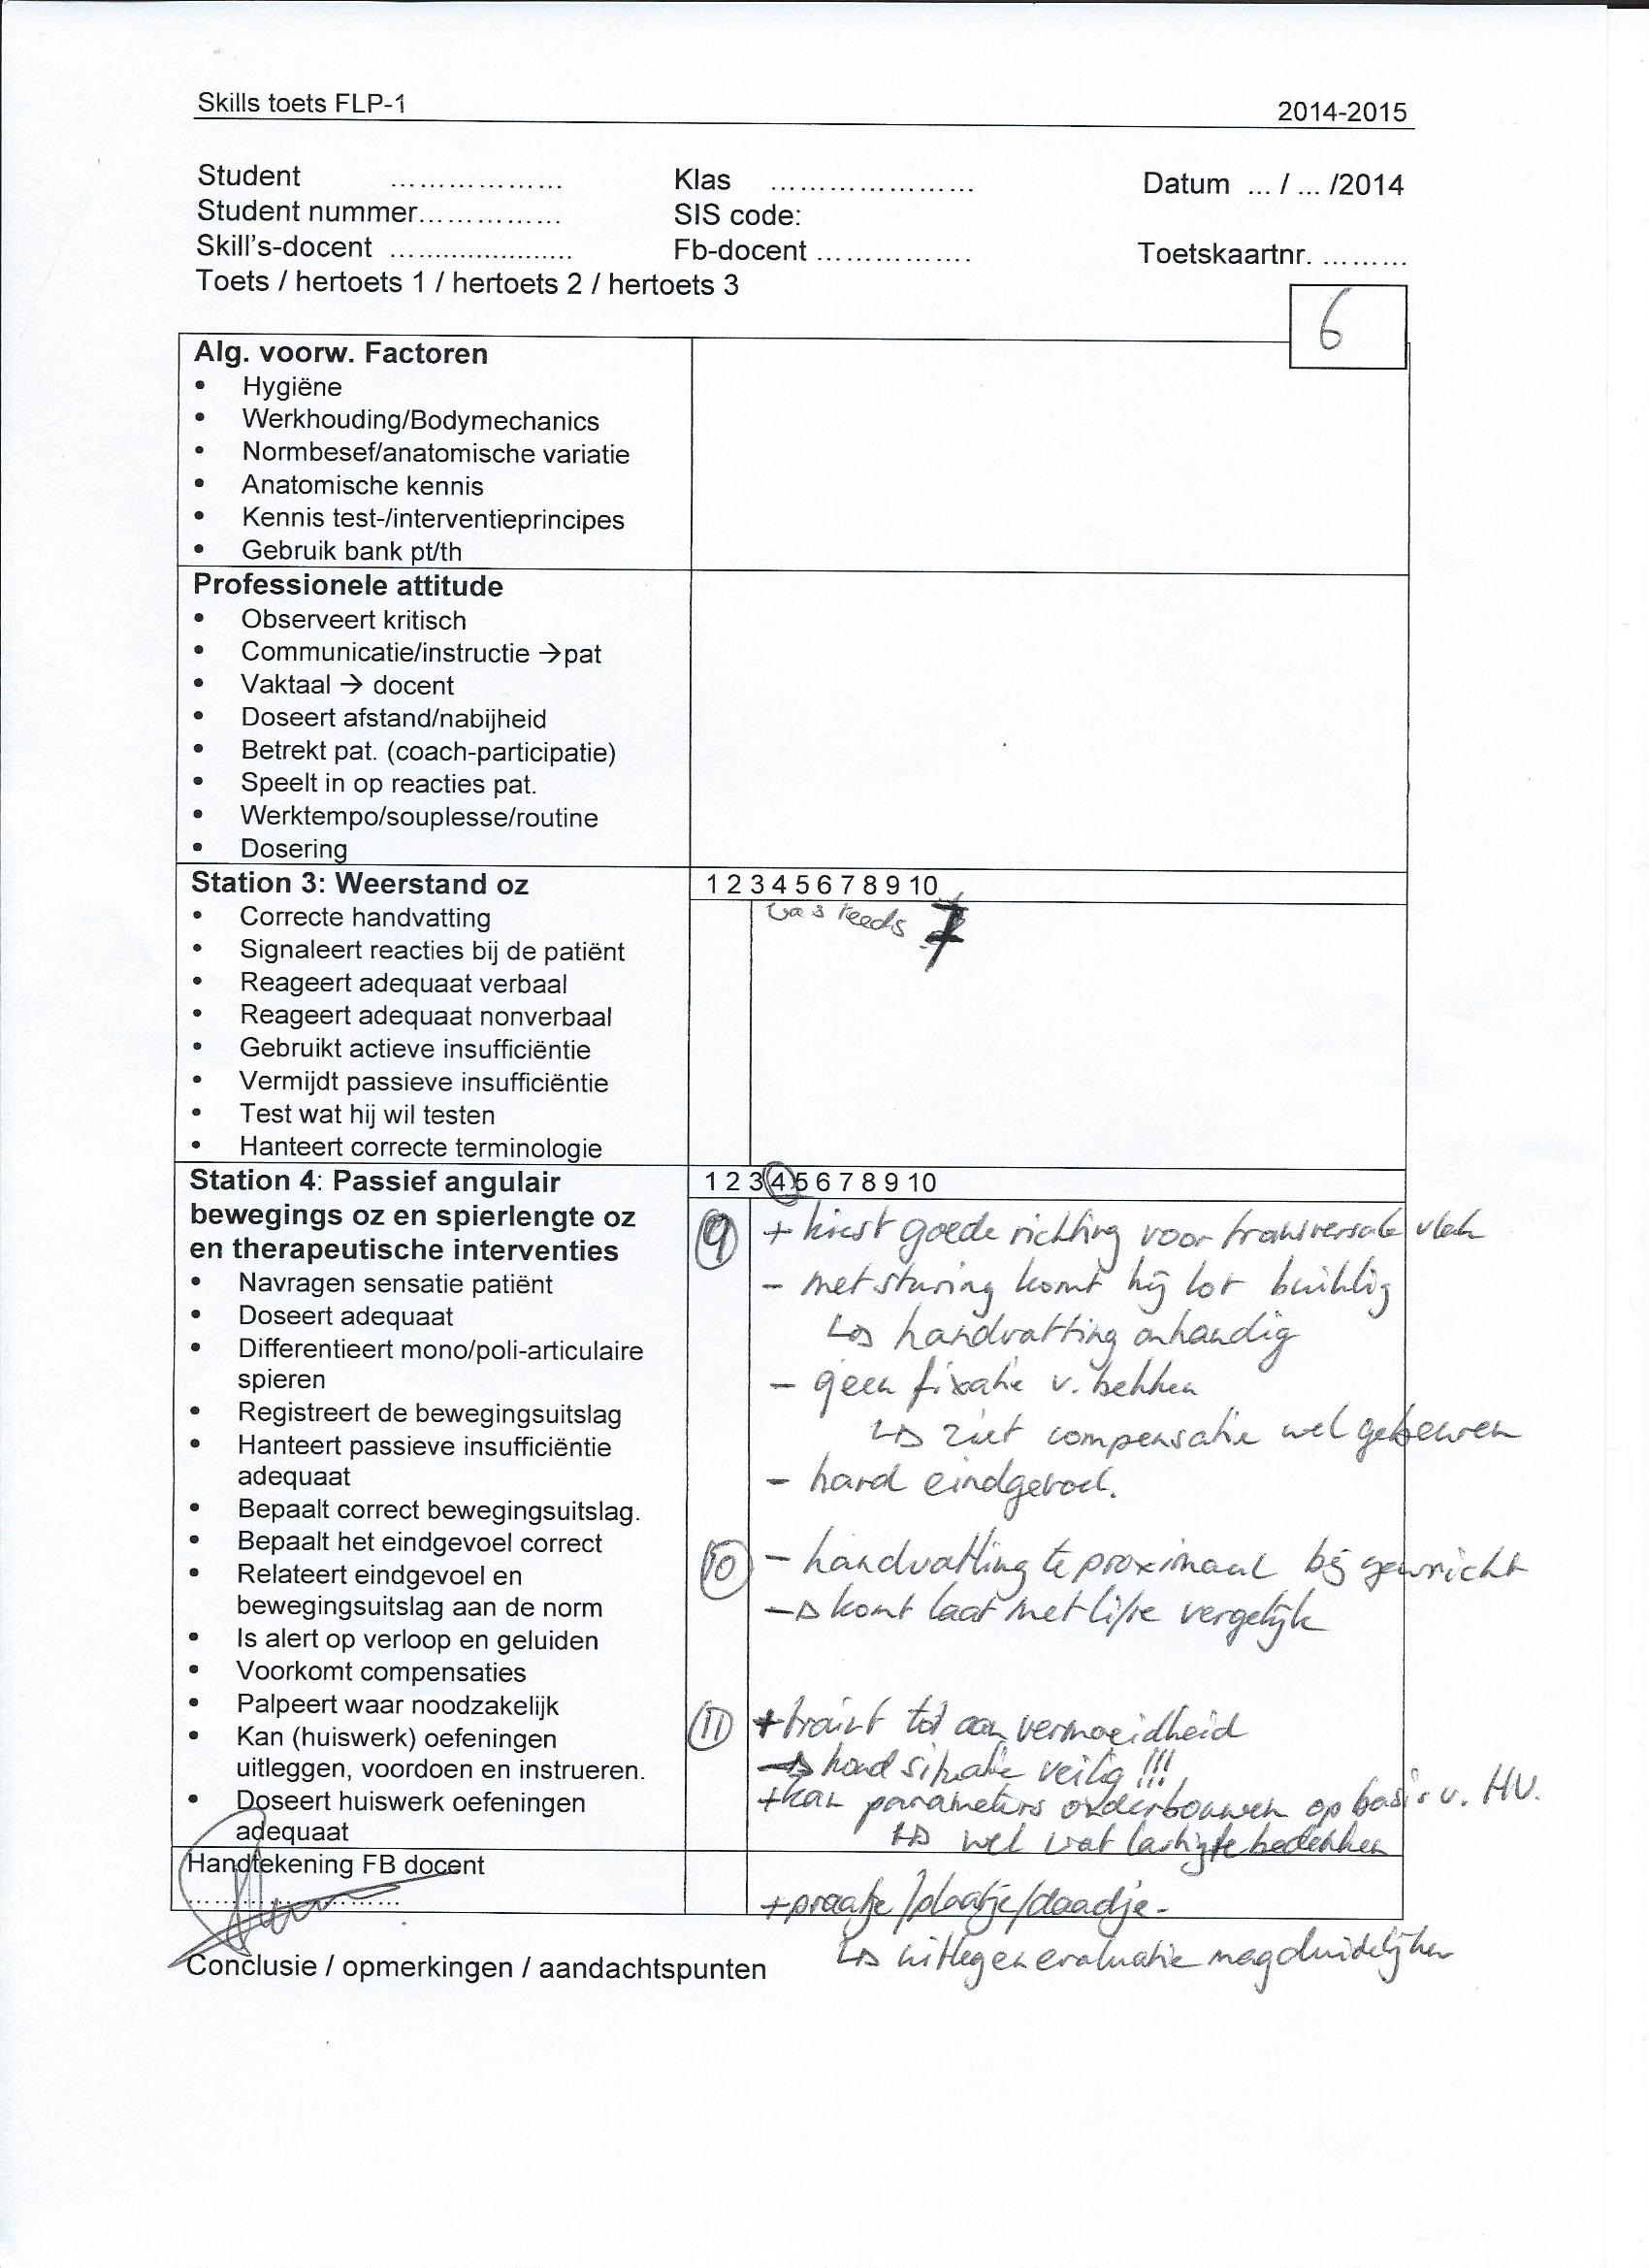 Skills toets FLP-1 2014-2015
Student .................. Klas ..................... Datum ... / ... /2014
Student nummer............... SIS code:
Skill's-docent ...................... Fb-docent ................ Toetskaartnr. .........
Toets / hertoets 1 / hertoets 2 / hertoets 3
6
Alg. voorw. Factoren
• Hygiëne
• Werkhouding/Bodymechanics
• Normbesef/anatomische variatie
• Anatomische kennis
• Kennis test-/interventieprincipes
• Gebruik bank pt/th
Professionele attitude
• Observeert kritisch
• Communicatie/instructie →pat
• Vaktaal → docent
• Doseert afstand/nabijheid
• Betrekt pat. (coach-participatie)
• Speelt in op reacties pat.
• Werktempo/souplesse/routine
• Dosering
Station 3: Weerstand oz 1 2 3 4 5 6 7 8 9 10
was reeds 7
• Correcte handvatting
• Signaleert reacties bij de patiënt
• Reageert adequaat verbaal
• Reageert adequaat nonverbaal
• Gebruikt actieve insufficiëntie
• Vermijdt passieve insufficiëntie
• Test wat hij wil testen
• Hanteert correcte terminologie
Station 4: Passief angulair
bewegings oz en spierlengte oz
en therapeutische interventies
• Navragen sensatie patiënt
• Doseert adequaat
• Differentieert mono/poli-articulaire
spieren
• Registreert de bewegingsuitslag
• Hanteert passieve insufficiëntie
adequaat
• Bepaalt correct bewegingsuitslag.
• Bepaalt het eindgevoel correct
• Relateert eindgevoel en
bewegingsuitslag aan de norm
• Is alert op verloop en geluiden
• Voorkomt compensaties
• Palpeert waar noodzakelijk
• Kan (huiswerk) oefeningen
uitleggen, voordoen en instrueren.
• Doseert huiswerk oefeningen
adequaat
1 2 3 4 5 6 7 8 9 10
9 + kiest goede richting voor transversale vlak
- met sturing komt hij tot buiklig
↳ handvatting onhandig
- geen fixatie v. bekken
↳ ziet compensatie wel gebeuren
- hard eindgevoel.
10 - handvatting te proximaal bij gewricht
→ komt laat met li/re vergelijk
11 + traint tot aan vermoeidheid
→ houd situatie veilig !!!
+ kan parameters onderbouwen op basis v. HV.
↳ wel wat lastig te bedenken
+ praatje/plaatje/daadje -
↳ uitleg en evaluatie mag duidelijker
Handtekening FB docent
..............................
Conclusie / opmerkingen / aandachtspunten